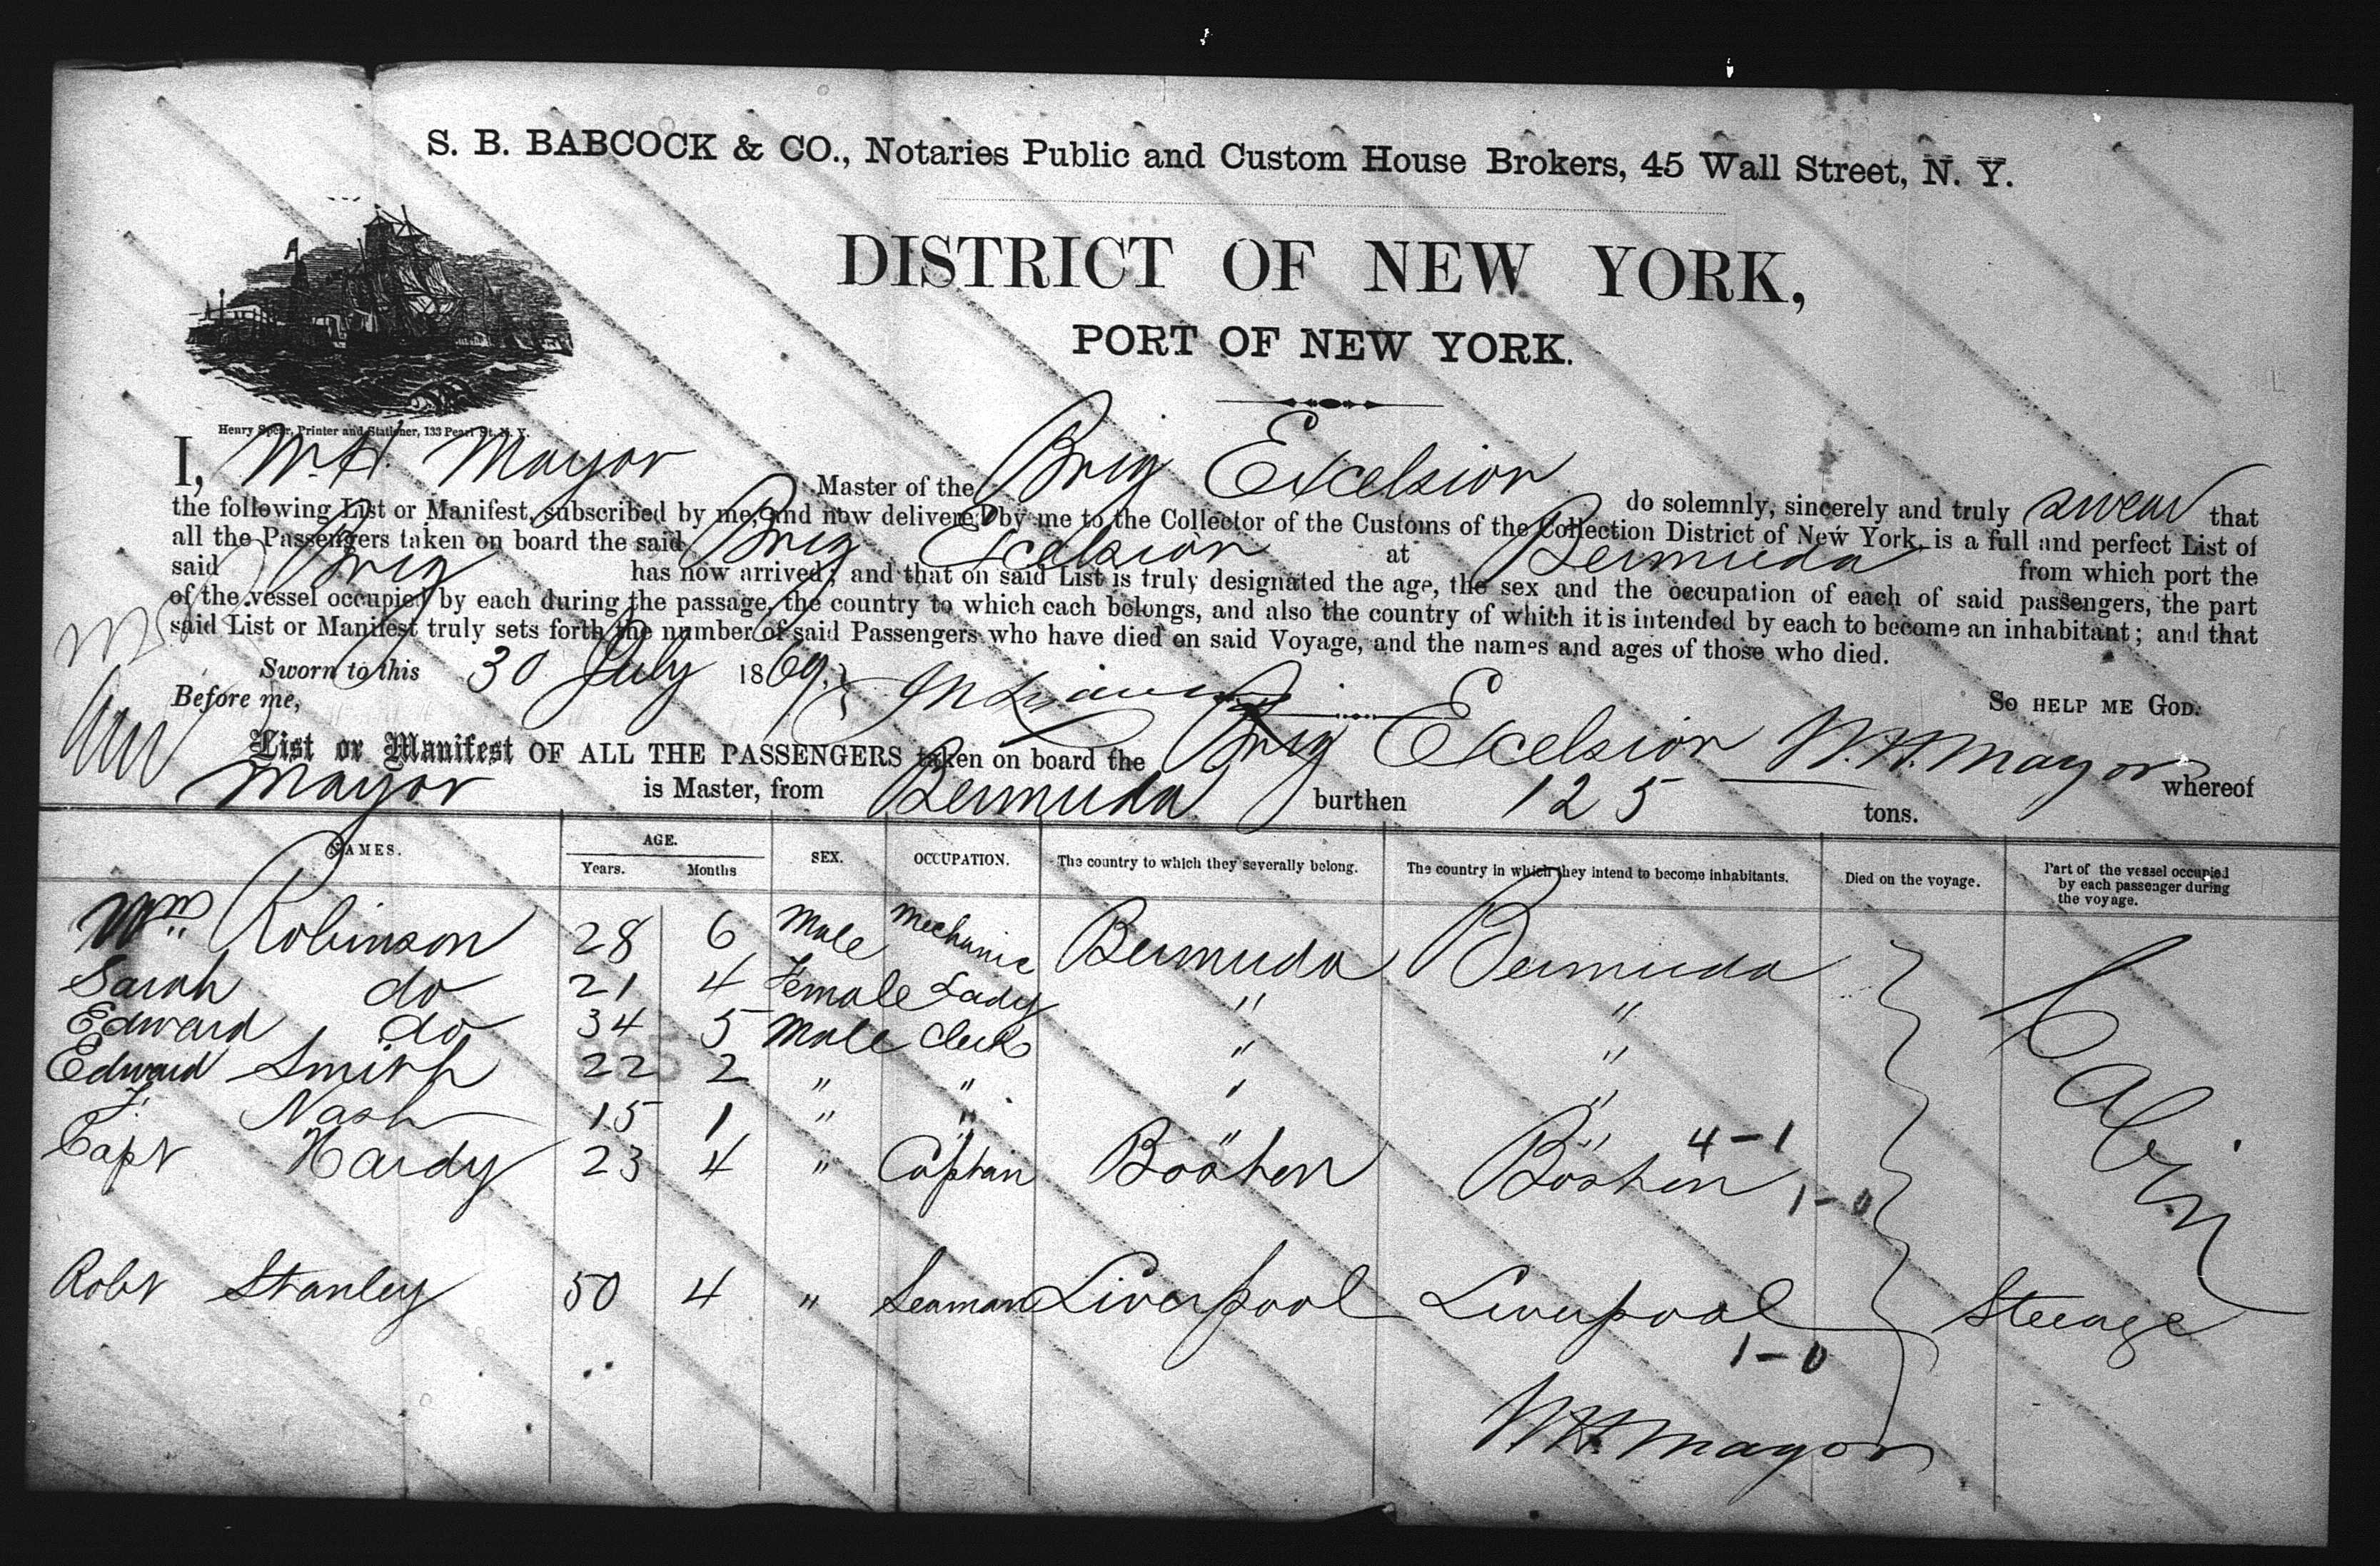 S. B. BABCOCK & CO., Notaries Public and Custom House Brokers, 45 Wall Street, N. Y.
DISTRICT OF NEW YORK,
PORT OF NEW YORK.
Henry Spear, Printer and Stationer, 133 Pearl St. N. Y.
I, W. H. Mayor Master of the Brig Excelsior do solemnly, sincerely and truly swear that
the following List or Manifest, subscribed by me, and now delivered by me to the Collector of the Customs of the Collection District of New York, is a full and perfect List of
all the Passengers taken on board the said Brig Excelsior at Bermuda from which port the
said Brig has now arrived; and that on said List is truly designated the age, the sex and the occupation of each of said passengers, the part
of the vessel occupied by each during the passage, the country to which each belongs, and also the country of which it is intended by each to become an inhabitant; and that
said List or Manifest truly sets forth the number of said Passengers who have died on said Voyage, and the names and ages of those who died.
Sworn to this 30 July 1869.
So HELP ME GOD.
Before me,
W. H. Mayor
List or Manifest OF ALL THE PASSENGERS taken on board the Brig Excelsior whereof
Mayor is Master, from Bermuda burthen 125 tons.
NAMES. AGE. Years. Months SEX. OCCUPATION. The country to which they severally belong. The country in which they intend to become inhabitants. Died on the voyage. Part of the vessel occupied by each passenger during the voyage.
Wm. Robinson 28 6 Male Mechanic Bermuda Bermuda Cabin
Sarah do 21 4 Female Lady " "
Edward do 34 5 Male Clerk " "
Edward Smith 22 2 " " " "
F. Nash 15 1 " " " " 4-1
Capt Hardy 23 4 " Captain Boston Boston 1-0
Robt Stanley 50 4 " Seaman Liverpool Liverpool Steerage
1-0
W H Mayor